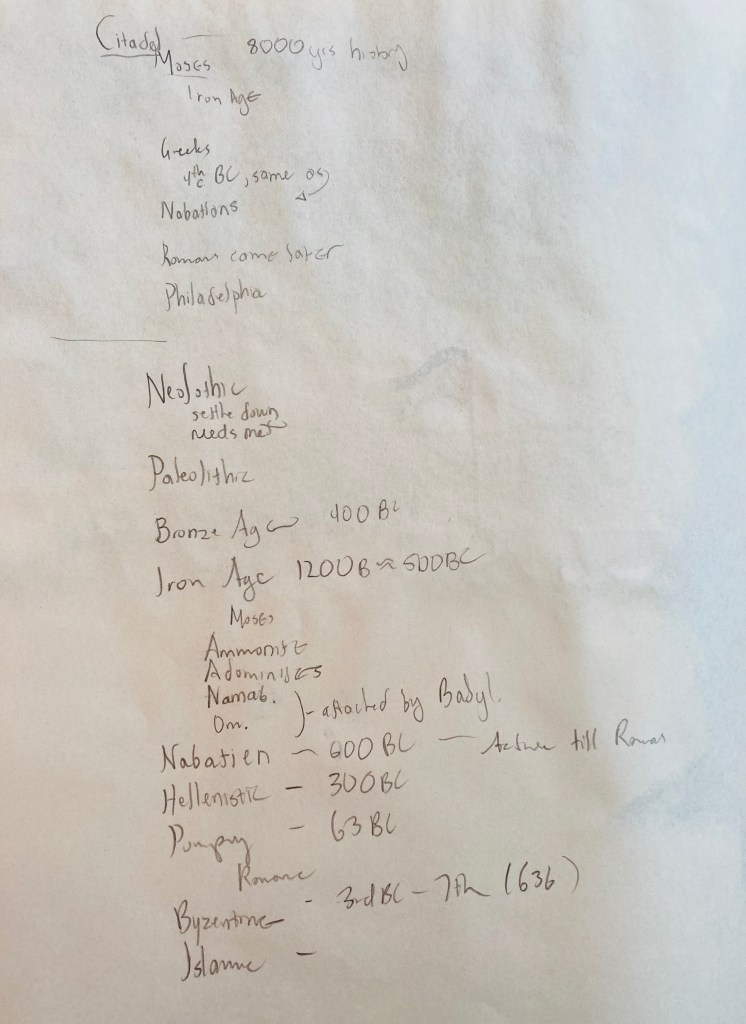 Citadel — 8000 yrs history
Moses
Iron Age
Greeks
4th c BC, same as
Nabations
Romans come later
Philadelphia
Neolothic
settle down
needs met
Paleolithic
Bronze Age 400 BC
Iron Age 1200B ~ 500BC
Moses
Ammonite
Adominites
Namab.
Om. )- attacked by Babyl.
Nabatien ~ 600 BC — Active till Romans
Hellenistic - 300BC
Pompey - 63 BC
Romans
Byzentine - 3rd BC - 7th (636)
Islamic -